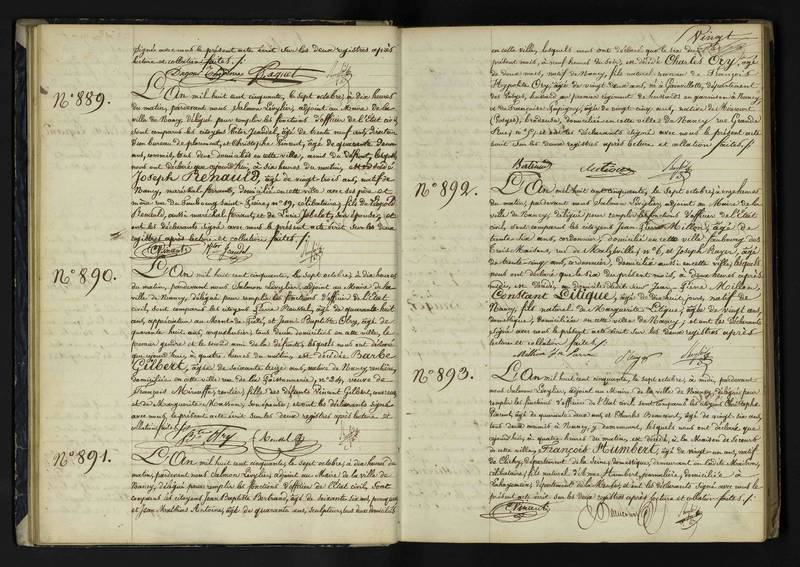 signé avec nous le présent acte écrit sur les deux registres après
lecture et collation faites ./.
N.° 889.
L'An mil huit cent cinquante, le sept octobre, à dix heures
du matin, pardevant nous Salomon Lévylier, adjoint au Maire de la
ville de Nancy, délégué pour remplir les fonctions d'officier de l'Etat civil,
sont comparus les citoyens âgé de trente neuf ans, Directeur
d'un bureau de placement, et Christophe Vincent, âgé de quarante deux
ans, commis, tous deux domiciliés en cette ville, amis du défunt, lesquels
nous ont déclaré que aujourd'hui, à six heures du matin, est décédé
Joseph Renauld, âgé de vingt-trois ans, natif de
Nancy, maréchal ferrant, domicilié en cette ville avec ses père et
mère rue du Faubourg Saint Pierre, n.° 19, célibataire, fils de Léopold
Renauld, aussi maréchal ferrant, et de son épouse; et
ont les déclarants signé avec nous le présent acte écrit sur les deux
registres après lecture et collation faites ./.
N.° 890.
L'An mil huit cent cinquante, le sept octobre, à dix heures
du matin, pardevant nous Salomon Lévylier, adjoint au Maire de la
ville de Nancy, délégué pour remplir les fonctions d'officier de l'Etat
civil, sont comparus les citoyens Pierre âgé de quarante huit
ans, appréciateur au Mont-de-Piété, et Jean Baptiste âgé de
quarante huit ans, tous deux domiciliés en cette ville, le
premier gendre et le second ami de la défunte, lesquels nous ont déclaré
que aujourd'hui, à quatre heures du matin, est décédée Barbe
Gilbert, âgée de soixante seize ans, native de Nancy, rentière,
domiciliée en cette ville rue de la Poissonnerie, n.° 24, veuve de
François rentier, fille des défunts Vincent Gilbert,
et de Marguerite son épouse; et ont les déclarants signé
avec nous le présent acte écrit sur les deux registres après lecture et
collation faites ./.
N.° 891.
L'An mil huit cent cinquante, le sept octobre, à dix heures du
matin, pardevant nous Salomon Lévylier, adjoint au Maire de la ville de
Nancy, délégué pour remplir les fonctions d'officier de l'Etat civil, sont
comparus les citoyens Jean Baptiste Bertrand, âgé de soixante six ans,
et Jean Mathias Antoine, âgé de quarante ans, sculpteur, tous deux domiciliés
Vingt
en cette ville, lesquels nous ont déclaré que le six du
présent mois, à neuf heures du soir, est décédé Charles Ory, âgé
de deux mois, natif de Nancy, fils naturel reconnu de François
Hyppolite Ory, âgé de vingt deux ans, né à département
des Vosges, hussard au premier régiment de hussards en garnison à Nancy
et de Françoise âgée de vingt cinq ans, native de
(Vosges), brodeuse, domiciliée en cette ville de Nancy rue Grande
Rue n.° 5; et ont les déclarants signé avec nous le présent acte
écrit sur les deux registres après lecture et collation faites ./.
N.° 892.
L'An mil huit cent cinquante, le sept octobre, à onze heures
du matin, pardevant nous Salomon Lévylier, adjoint au Maire de la
ville de Nancy, délégué pour remplir les fonctions d'officier de l'Etat
civil, sont comparus les citoyens Jean Pierre Millon, âgé de
trente six ans, cordonnier, domicilié en cette ville faubourg des
Trois Maisons, rue de n.° 6, et Joseph âgé
de trente-cinq ans, cordonnier, domicilié aussi en cette ville, lesquels
nous ont déclaré que le six du présent mois, à deux heures après
midi, est décédé, au domicile dudit sieur Jean Pierre Millon,
Constant Litique, âgé de dix huit jours, natif de
Nancy, fils naturel de Marguerite Litique, âgée de vingt ans,
domestique, domiciliée en cette ville de Nancy; et ont les déclarants
signé avec nous le présent acte écrit sur les deux registres après
lecture et collation faites ./.
N.° 893.
L'An mil huit cent cinquante, le sept octobre, à midi, pardevant
nous Salomon Lévylier, adjoint au Maire de la ville de Nancy, délégué pour
remplir les fonctions d'officier de l'Etat civil, sont comparus les citoyens Christophe
Vincent, âgé de quarante deux ans, et Charles âgé de vingt six ans,
tous deux commis à Nancy, y demeurant, lesquels nous ont déclaré que
aujourd'hui, à quatre heures du matin, est décédé, à la Maison de Secours
de cette ville, François Humbert, âgé de vingt-un ans, natif
de Clichy, département de la Seine, domestique, demeurant en ladite Maison,
célibataire, fils naturel d'Anne Humbert, journalière, domiciliée à
département de la Meurthe; et ont les déclarants signé avec nous le
présent acte écrit sur les deux registres après lecture et collation faites ./.